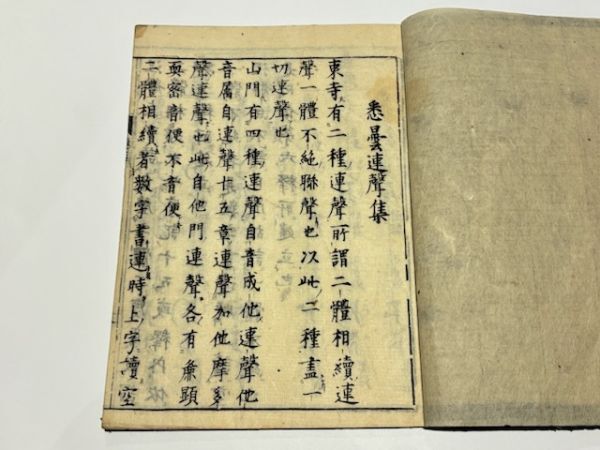 悉曇連聲集
東寺有二種連聲所謂二體相續連
聲一體不絶聯聲也以此二種盡一
切連聲也
山門有四種連聲自音成他連聲他
音属自連聲十五章連聲加他摩多
聲連聲也此自他門連聲各有顯
耎密音便不音便
二體相續者數字書連時上字讀空